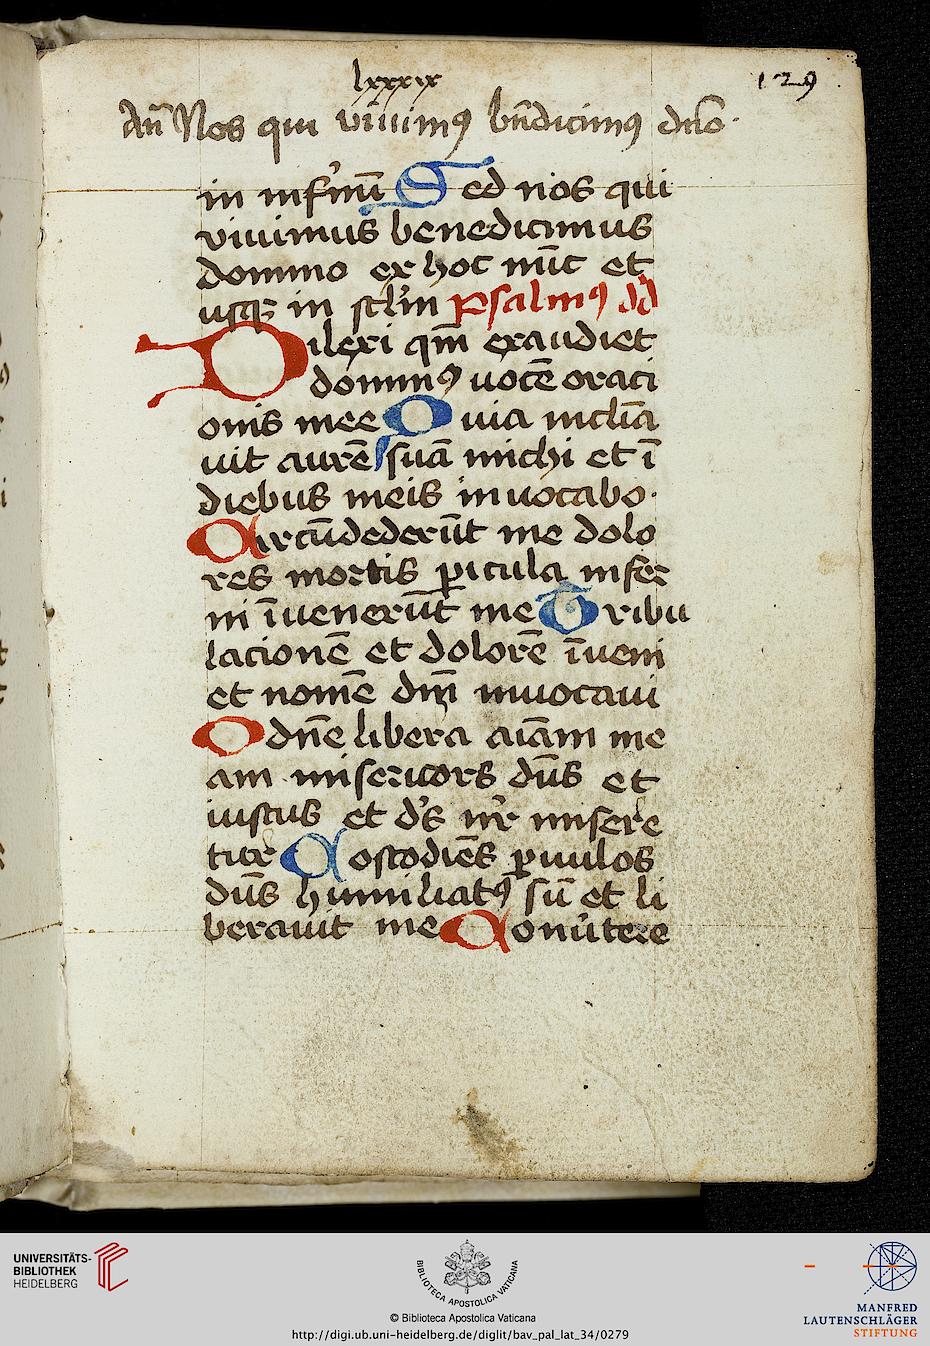 lxxxix
129
Añ Nos qui viuimꝰ bn̄dicimꝰ dn̄o·
in infʼnū Sed nos qui
viuimus benedicimus
domino ex hoc nūc et
usqꝫ in sclʼm Psalmꝰ dd̄
Dilexi qm̄ exaudiet
dominꝰ uocē oraci
onis mee Quia inclīa
uit aurē suā michi et ī
diebus meis inuocabo·
Circūdederūt me dolo
res mortis ꝑicula infer
ni īuenerūt me Tribu
lacionē et dolorē īueni
et nomē dnī inuocaui
O dn̄e libera aīam me
am misericors dn̄s et
iustus et dʼs nr̄ misere
tur Costodiēs ꝑuulos
dn̄s humiliatꝰ sū et li
berauit me Conūtere
UNIVERSITÄTS-
BIBLIOTHEK
HEIDELBERG
BIBLIOTECA APOSTOLICA VATICANA
© Biblioteca Apostolica Vaticana
http://digi.ub.uni-heidelberg.de/diglit/bav_pal_lat_34/0279
MANFRED
LAUTENSCHLÄGER
STIFTUNG